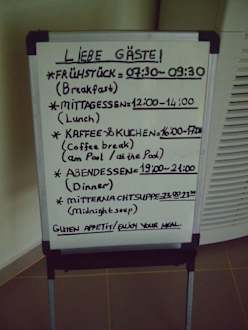 LIEBE GÄSTE!
* FRÜHSTÜCK = 07:30 - 09:30
(Breakfast)
* MITTAGESSEN = 12:00 - 14:00
(Lunch)
* KAFFEE & KUCHEN = 16:00 - 17:00
(Coffee break)
(am Pool / at the Pool)
* ABENDESSEN = 19:00 - 21:00
(Dinner)
* MITTERNACHTSUPPE =
(Midnight soup)
GUTEN APPETIT / ENJOY YOUR MEAL